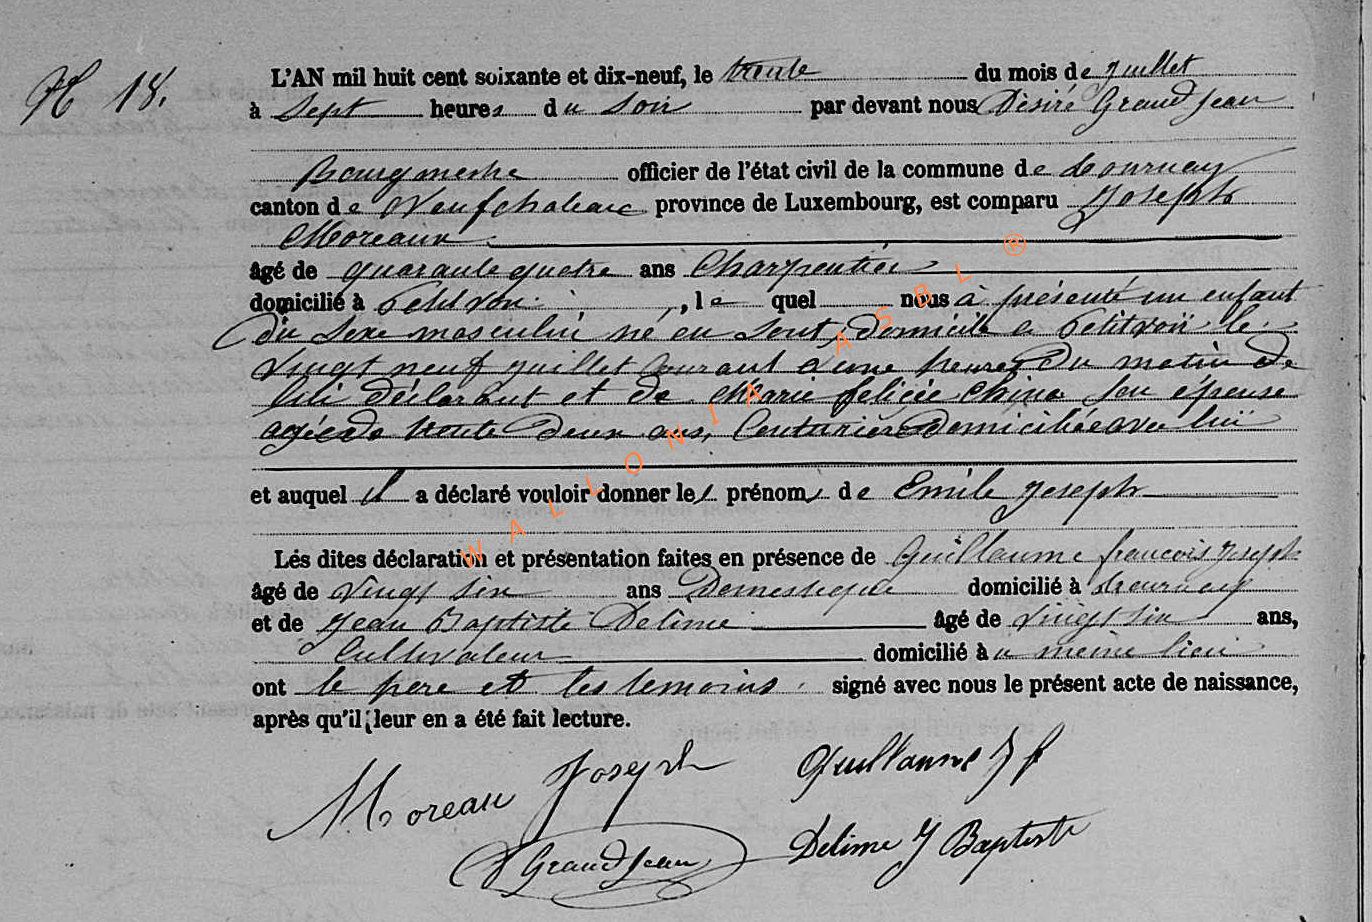 N 18.
L'AN mil huit cent soixante et dix-neuf, le trente du mois de juillet
à Sept heures du Soir par devant nous Désiré Grandjean
Bourgmestre officier de l'état civil de la commune de Tournay
canton de Neufchateau province de Luxembourg, est comparu Joseph
Moreaux
âgé de quarante quatre ans Charpentier
domicilié à Petitvoir, le quel nous à présenté un enfant
du Sexe masculin né en Sont domicile a Petitvoir le
Vingt neuf juillet Courant a une heures Du matin de
lui déclarant et de Marie félicie China Son épouse
agée de trente Deux ans, Couturière Domiciliée avec lui
et auquel il a déclaré vouloir donner les prénoms de Emile Joseph
Lés dites déclaration et présentation faites en présence de Guillaume francois Joseph
âgé de Vingt six ans Domestique domicilié à Tournay
et de Jean Baptiste Delime âgé de Vingt six ans,
Cultivateur domicilié au même lieu
ont le père et les temoins signé avec nous le présent acte de naissance,
après qu'il leur en a été fait lecture.
Moreau Joseph Guillaume J f
D Grandjean Delime J Baptiste
WALLONIA ASBL ®